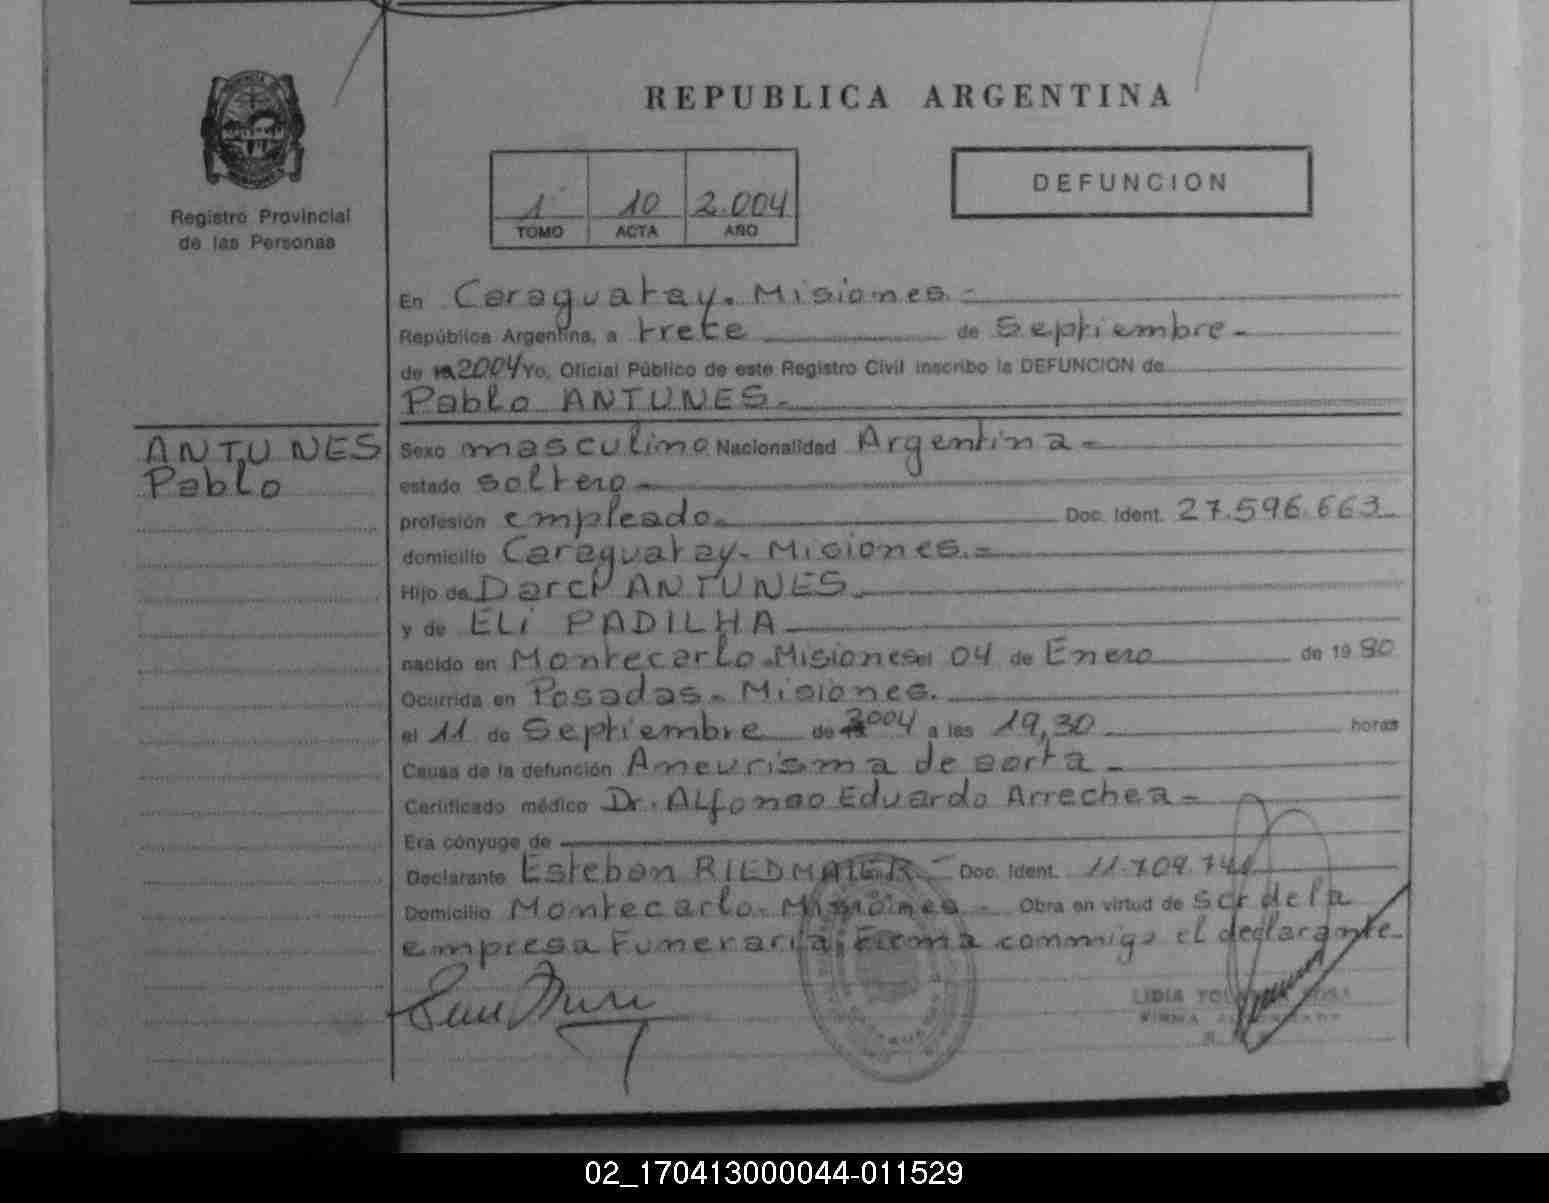 REPUBLICA ARGENTINA
Registro Provincial
de las Personas
1 10 2.004
TOMO ACTA AÑO
DEFUNCION
En Caraguatay. Misiones.-
República Argentina, a trece de Septiembre-
de 2004 Yo, Oficial Público de este Registro Civil inscribo la DEFUNCION de
Pablo ANTUNES.-
ANTUNES
Pablo
Sexo masculino Nacionalidad Argentina-
estado soltero-
profesión empleado. Doc. Ident. 27.596.663
domicilio Caraguatay- Misiones.-
Hijo de Darci ANTUNES
y de ELi PADILHA
nacido en Montecarlo-Misiones el 04 de Enero de 1980
Ocurrida en Posadas- Misiones.
el 11 de Septiembre de 2004 a las 19,30 horas
Causa de la defunción Aneurisma de aorta-
Certificado médico Dr. Alfonso Eduardo Arrechea-
Era cónyuge de
Declarante Esteban RIEDMAIER- Doc. Ident. 11.709.
Domicilio Montecarlo- Misiones- Obra en virtud de ser de la
empresa Funeraria, Firma conmigo el declarante-
LIDIA
02_170413000044-011529